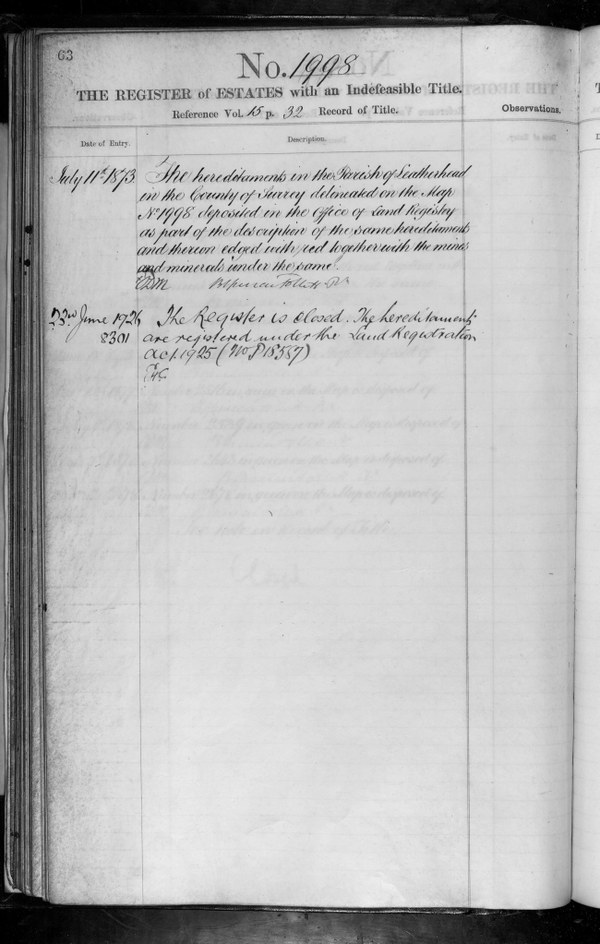 63
No. 1998
THE REGISTER of ESTATES with an Indefeasible Title.
Reference Vol. 15 p. 32 Record of Title.
Observations.
Date of Entry.
Description.
July 11th 1873 The hereditaments in the Parish of Leatherhead
in the County of Surrey delineated on the Map
No 1998 deposited in the Office of Land Registry
as part of the description of the same hereditaments
and thereon edged with red together with the mines
and minerals under the same.
23rd June 1926 The Register is closed. The hereditaments
8301 are registered under the Land Registration
Act 1925 (No P18587)